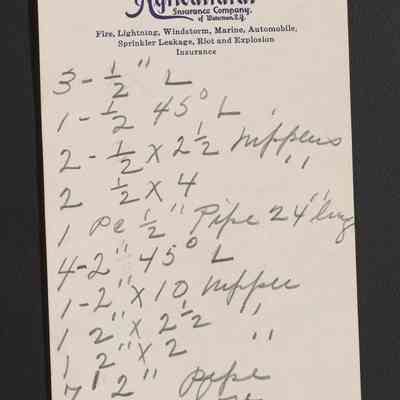 Agricultural
Insurance Company,
of Watertown, N.Y.
Fire, Lightning, Windstorm, Marine, Automobile,
Sprinkler Leakage, Riot and Explosion
Insurance
3 - 1/2" L
1 - 1/2 45° L
2 - 1/2 x 2 1/2 nipples
2 1/2 x 4 "
1 pc 1/2" Pipe 24" long
4 - 2" 45° L
1 - 2" x 10 nipple
1 2" x 2 1/2 "
1 2" x 2 "
7' 2" pipe